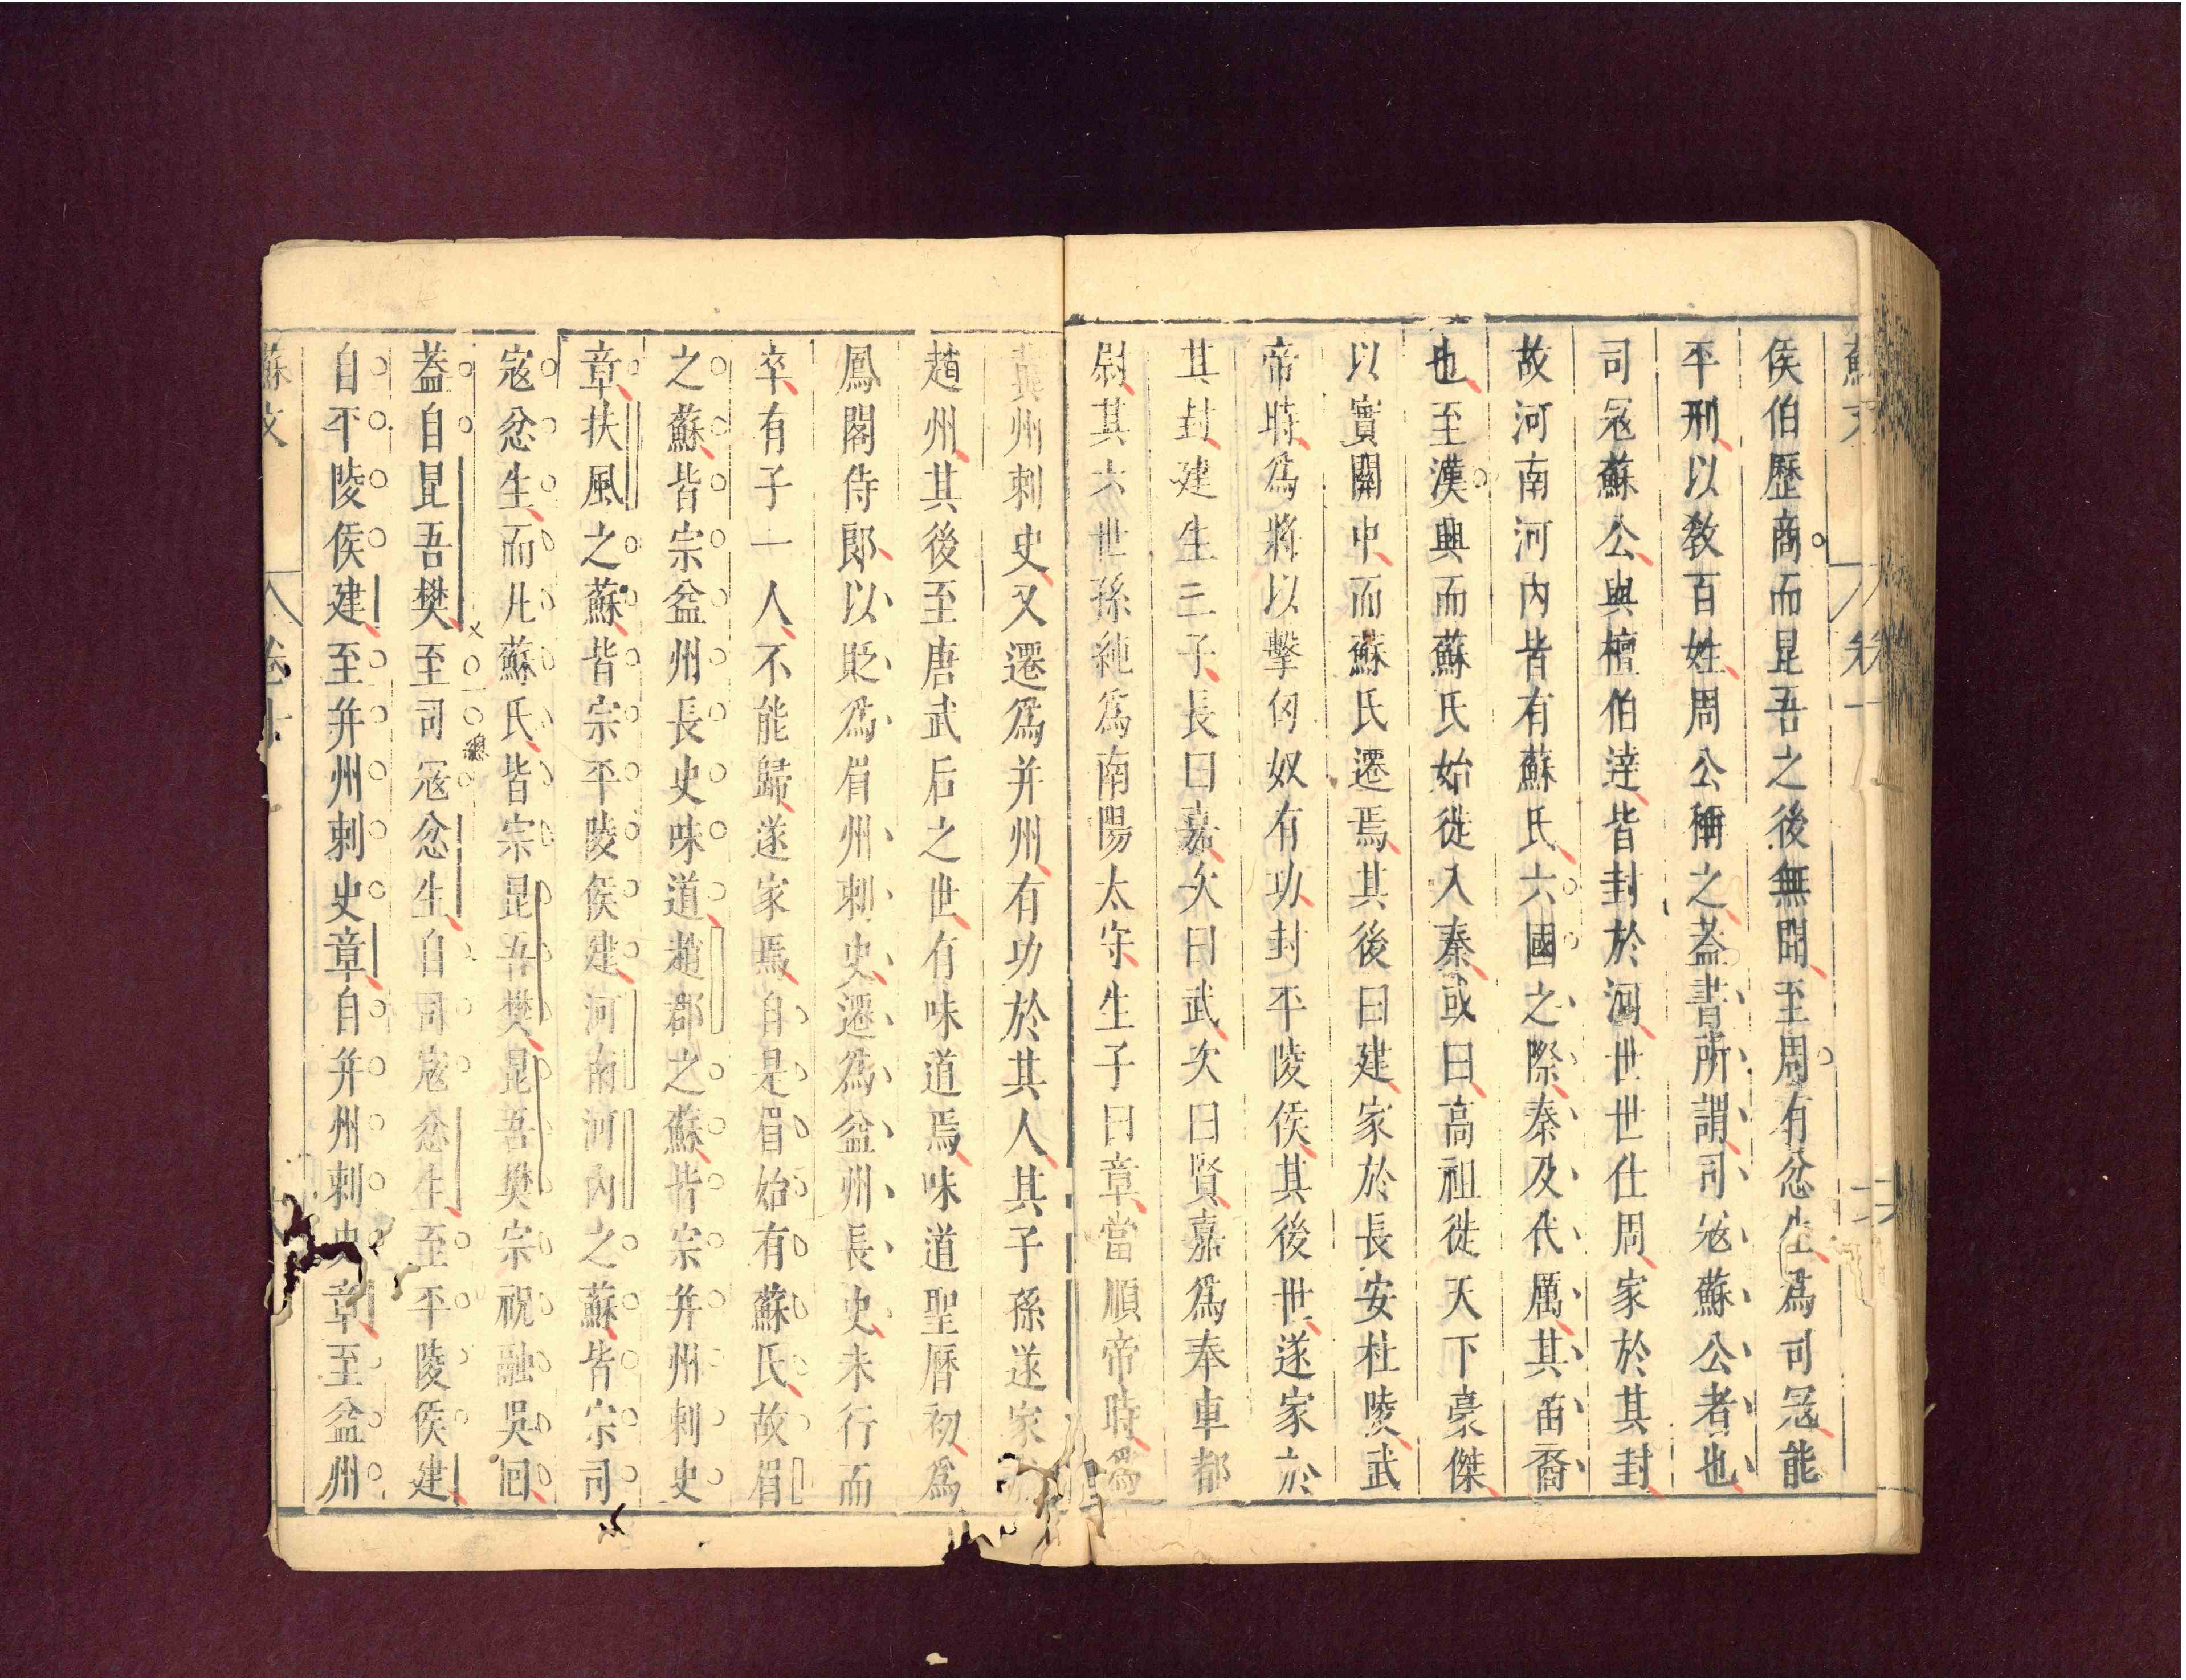 侯伯歷商而昆吾之後無聞至周有忿生爲司冦能
平刑以敎百姓周公稱之葢書所謂司冦蘇公者也
司冦蘇公與檀伯逹皆封於河世世仕周家於其封
故河南河內皆有蘇氏六國之際秦及代厲其苗裔
也至漢興而蘇氏始徙入秦或曰高祖徙天下豪傑
以實關中而蘇氏遷焉其後曰建家於長安杜陵武
帝時爲將以擊匈奴有功封平陵侯其後世遂家於
其封建生三子長曰嘉次曰武次曰賢嘉爲奉車都
尉其六世孫純爲南陽太守生子曰章當順帝時爲
兾州刺史又遷爲并州有功於其人其子孫遂家
趙州其後至唐武后之世有味道焉味道聖曆初爲
鳳閣侍郎以貶爲眉州刺史遷爲益州長史未行而
卒有子一人不能歸遂家焉自是眉始有蘇氏故眉
之蘇皆宗益州長史味道趙郡之蘇皆宗并州刺史
章扶風之蘇皆宗平陵侯建河南河內之蘇皆宗司
冦忿生而凡蘇氏皆宗昆吾樊昆吾樊宗祝融吳回
葢自昆吾樊至司冦忿生自司冦忿生至平陵侯建
自平陵侯建至并州刺史章自并州刺史章至益州
蘇文 卷十